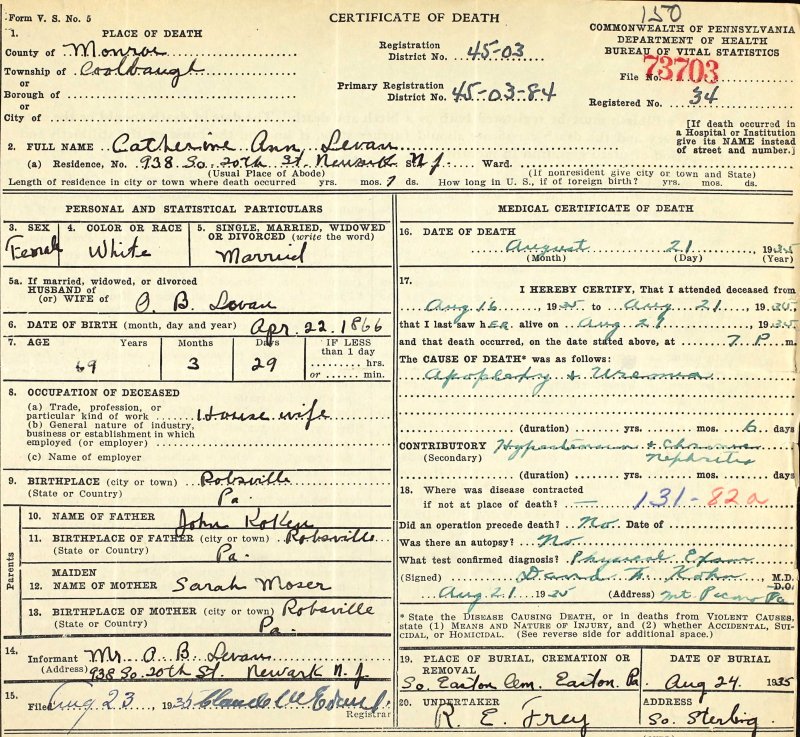 Form V. S. No. 5
CERTIFICATE OF DEATH
150
COMMONWEALTH OF PENNSYLVANIA
DEPARTMENT OF HEALTH
BUREAU OF VITAL STATISTICS
1. PLACE OF DEATH
County of Monroe
Township of Coolbaugh
or
Borough of
or
City of
Registration
District No. 45-03
Primary Registration
District No. 45-03-84
File No. 73703
Registered No. 34
[If death occurred in
a Hospital or Institution
give its NAME instead
of street and number.]
2. FULL NAME Catherine Ann Levan
(a) Residence, No. 938 So. 20th St. Newark St. N J Ward.
(Usual Place of Abode) (If nonresident give city or town and State)
Length of residence in city or town where death occurred yrs. mos. 7 ds. How long in U. S., if of foreign birth? yrs. mos. ds.
PERSONAL AND STATISTICAL PARTICULARS
3. SEX
Female
4. COLOR OR RACE
White
5. SINGLE, MARRIED, WIDOWED
OR DIVORCED (write the word)
Married
5a. If married, widowed, or divorced
HUSBAND of
(or) WIFE of O. B. Levan
6. DATE OF BIRTH (month, day and year) Apr. 22. 1866
7. AGE Years Months Days
69 3 29
IF LESS
than 1 day
hrs.
or min.
8. OCCUPATION OF DECEASED
(a) Trade, profession, or
particular kind of work House wife
(b) General nature of industry,
business or establishment in which
employed (or employer)
(c) Name of employer
9. BIRTHPLACE (city or town) Robsville
(State or Country) Pa.
Parents
10. NAME OF FATHER John Koken
11. BIRTHPLACE OF FATHER (city or town) Robsville
(State or Country) Pa.
MAIDEN
12. NAME OF MOTHER Sarah Moser
13. BIRTHPLACE OF MOTHER (city or town) Robsville
(State or Country) Pa.
14. Informant Mr O B Levan
(Address) 938 So. 20th St. Newark N. J
15. Filed Aug 23 1935
Registrar
MEDICAL CERTIFICATE OF DEATH
16. DATE OF DEATH
August 21 1935
(Month) (Day) (Year)
17. I HEREBY CERTIFY, That I attended deceased from
Aug 16 1935 to Aug 21, 1935,
that I last saw her alive on Aug 21 1935
and that death occurred, on the date stated above, at 7 P m.
The CAUSE OF DEATH* was as follows:
Apoplexy & Uremia
(duration) yrs. mos. 6 days
CONTRIBUTORY Hypertension & Chronic
(Secondary) Nephritis
(duration) yrs. mos. days
18. Where was disease contracted
if not at place of death? — 131-82a
Did an operation precede death? No. Date of
Was there an autopsy? No.
What test confirmed diagnosis? Physical Exam
(Signed) David H. Kohn M.D.
D.O.
Aug 21 1935 (Address) Mt Pocono Pa
* State the DISEASE CAUSING DEATH, or in deaths from VIOLENT CAUSES,
state (1) MEANS AND NATURE OF INJURY, and (2) whether ACCIDENTAL, SUI-
CIDAL, or HOMICIDAL. (See reverse side for additional space.)
19. PLACE OF BURIAL, CREMATION OR
REMOVAL
So. Easton Cem. Easton Pa.
DATE OF BURIAL
Aug 24 1935
20. UNDERTAKER
R. E. Frey
ADDRESS
So. Sterling.